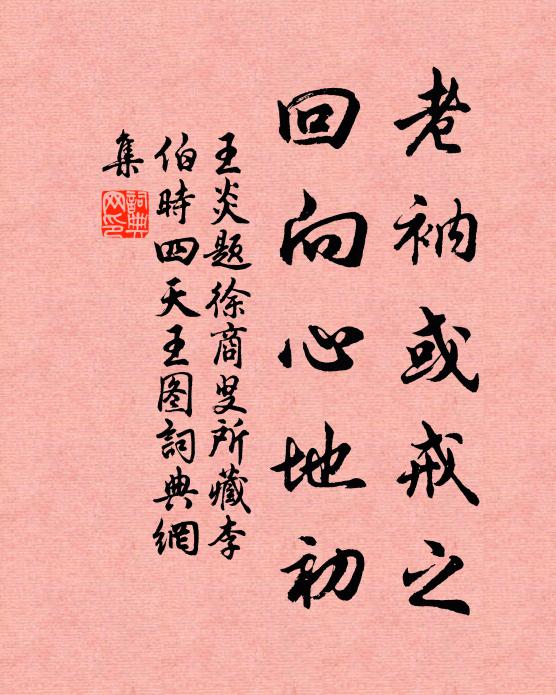 老衲或戒之
回向心地初
王炎题徐商叟所藏李
伯時四天王图詞典網
集
詞典
网印